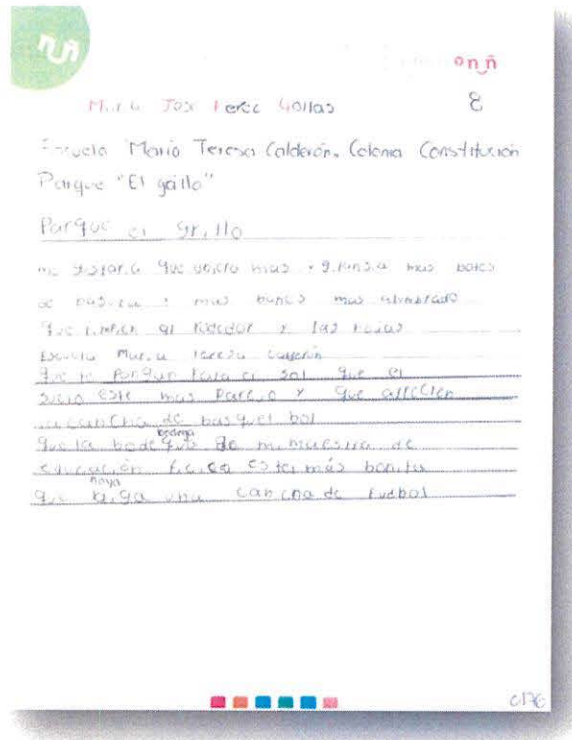 nuñ
onñ
Jose Perez Gollas 8
Escuela Maria Teresa Calderón. Colonia Constitución
Parque "El gaillo"
Parque el grillo
me gustaria que ubiera mas y mas botes
de basura y mas bancs mas alumbrado
que limpien al rededor y las hojas
Escuela Maria Teresa Calderón
que le pongan para el sol que el
sucio este mas parejo y que
la cancha de basquet bol
bodega
que la bode de mi maestra de
educación ficica este más bonita
haya
que una cancha de fudbol